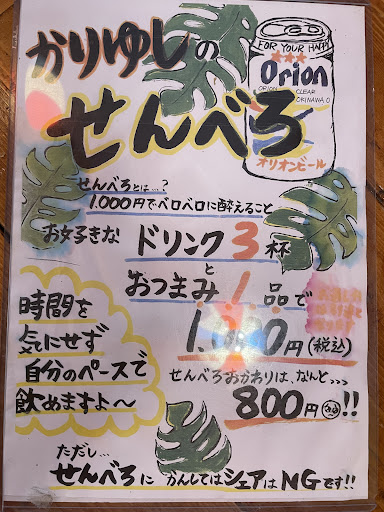 かりゆしの
せんべろ
FOR YOUR HAPP
Orion
CLEAR
OKINAWA
オリオンビール
せんべろとは…?
1.000円でベロベロに酔えること
お好きな ドリンク3杯
と
おつまみ1品で
1.000円(税込)
時間を
気にせず
自分のペースで
飲めますよ~
せんべろおかわりは、なんと、、、
800円!!
ただし…
せんべろに かんしてはシェアはNGです!!